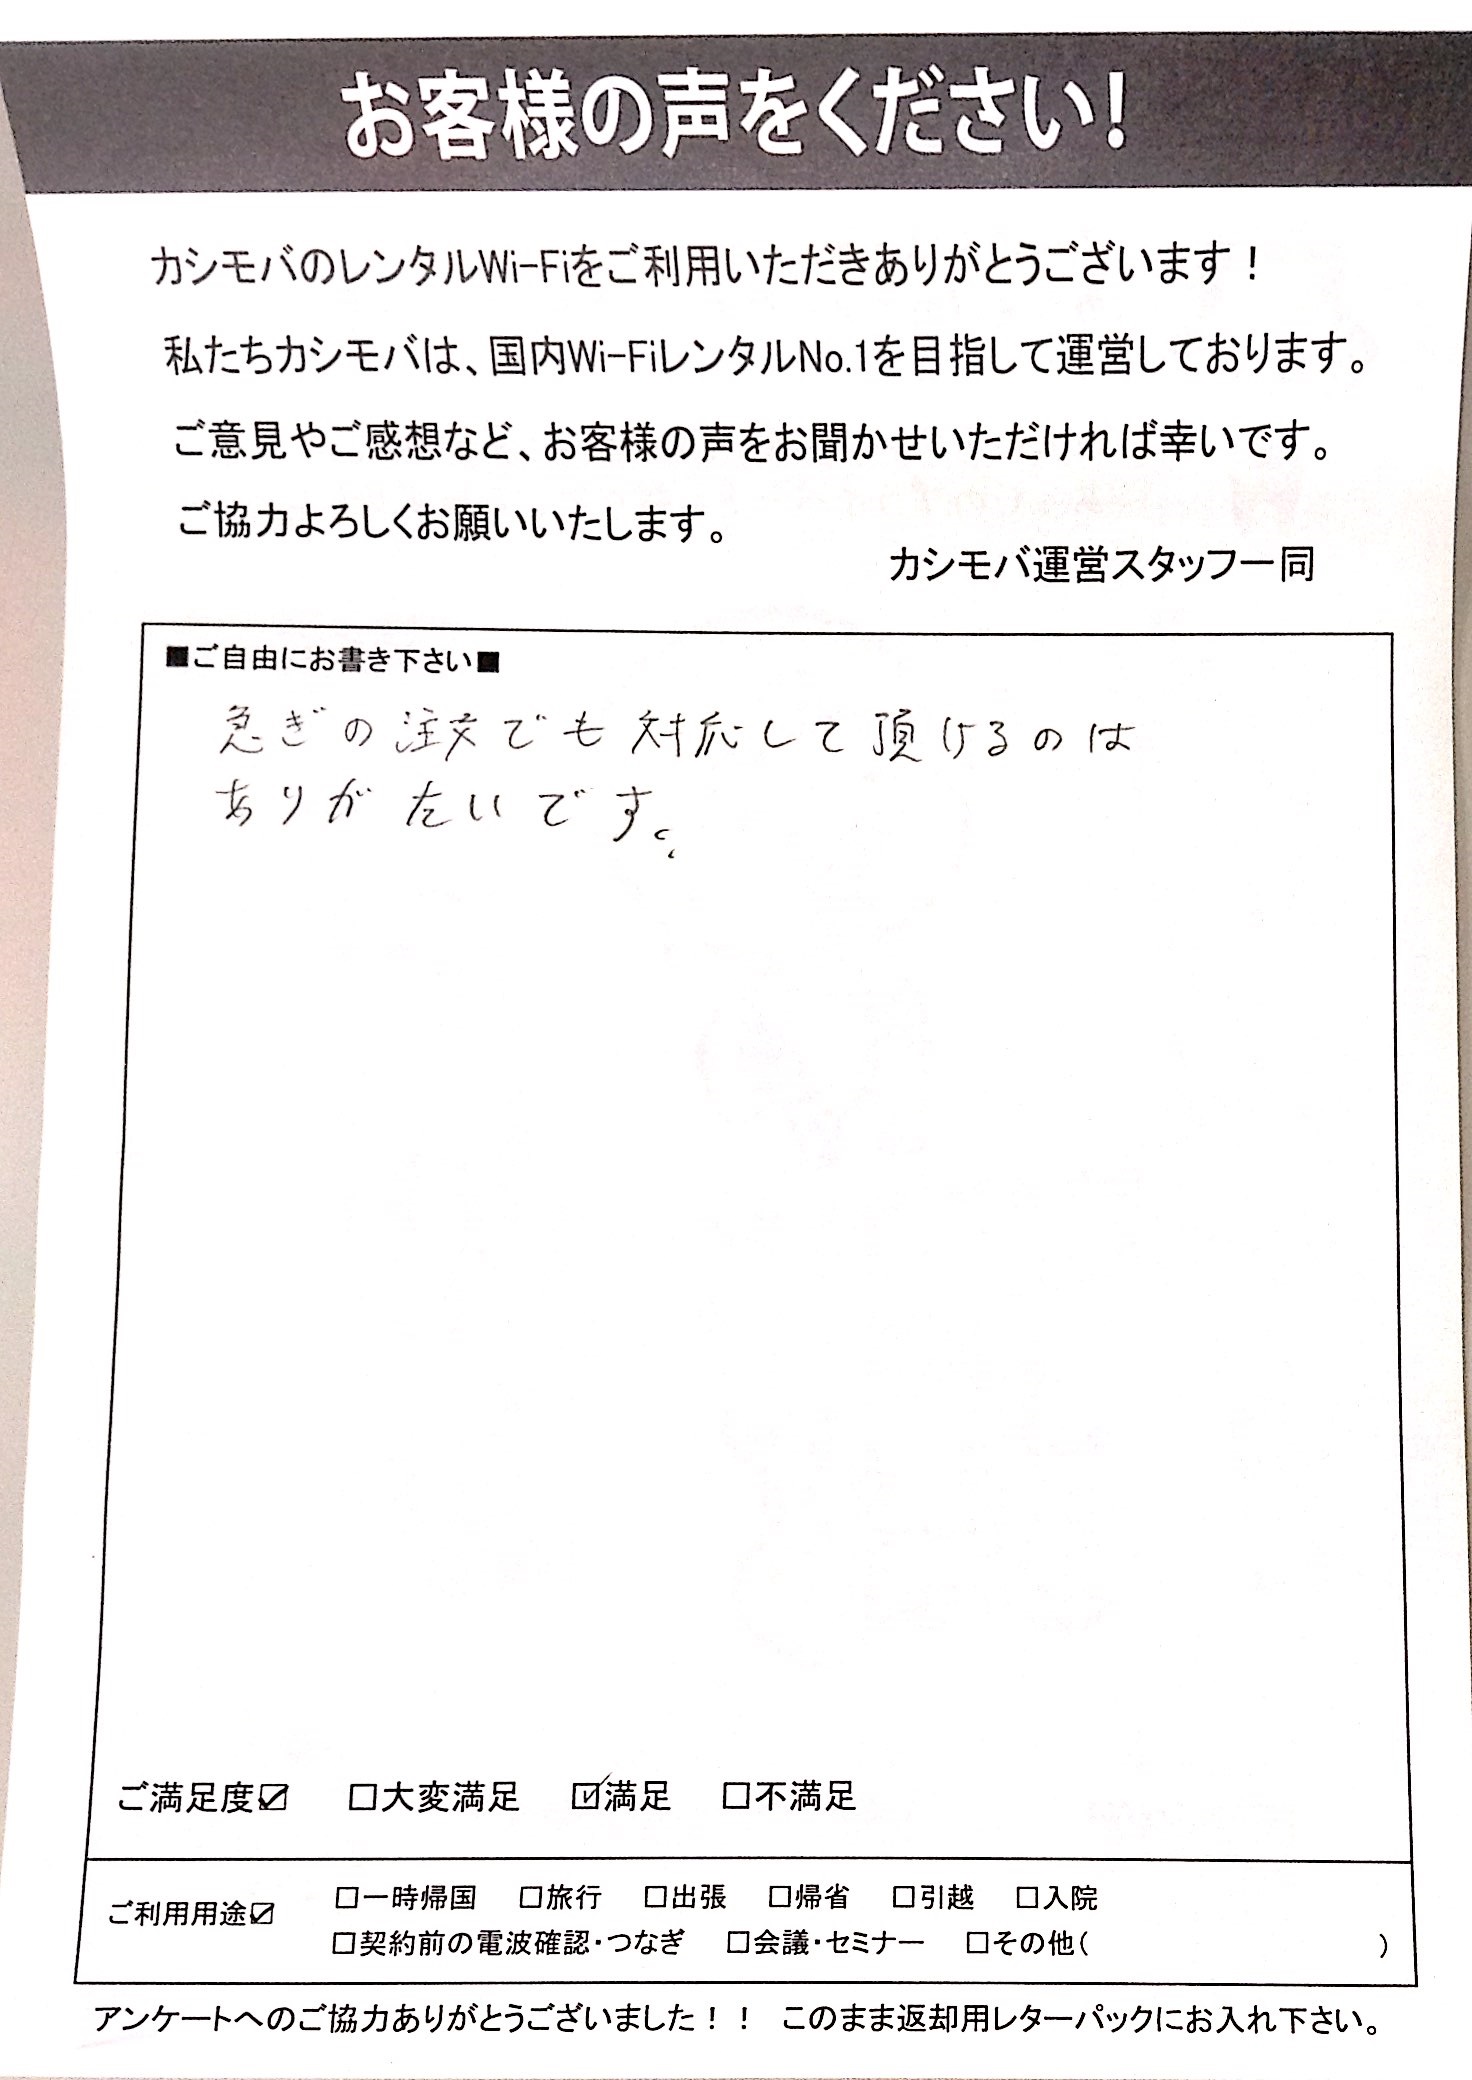 お客様の声をください!
カシモバのレンタルWi-Fiをご利用いただきありがとうございます！
私たちカシモバは、国内Wi-FiレンタルNo.1を目指して運営しております。
ご意見やご感想など、お客様の声をお聞かせいただければ幸いです。
ご協力よろしくお願いいたします。
カシモバ運営スタッフ一同
■ご自由にお書き下さい■
急ぎの注文でも対応して頂けるのは
ありがたいです。
ご満足度☑ □大変満足 ☑満足 □不満足
ご利用用途☑ □一時帰国 □旅行 □出張 □帰省 □引越 □入院
□契約前の電波確認・つなぎ □会議・セミナー □その他( )
アンケートへのご協力ありがとうございました！！ このまま返却用レターパックにお入れ下さい。